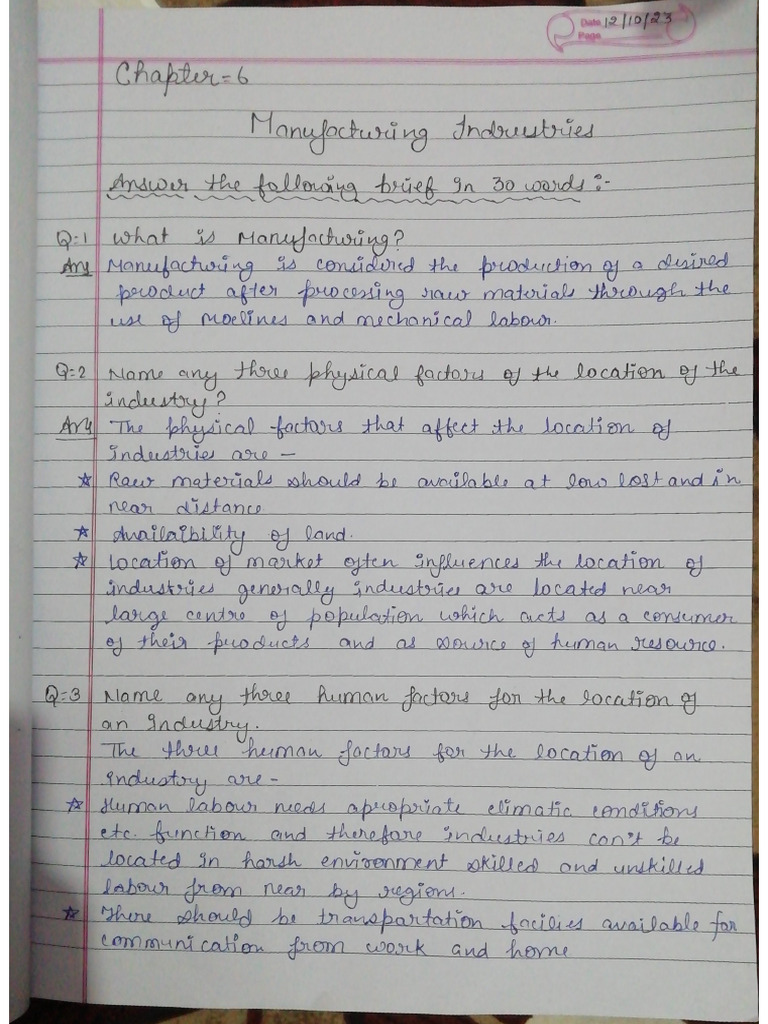 Date 12/10/23
Page
Chapter=6
Manufacturing Indrustries
Answer the following brief in 30 words:-
Q=1 What is Manufacturing?
Ans Manufacturing is considered the production of a desired
product after processing raw materials through the
use of moclines and mechanical labour.
Q=2 Name any three physical factors of the location of the
industry?
Ans The physical factors that affect the location of
industries are -
☆ Raw materials should be available at low lost and in
near distance
☆ Availaibility of land.
☆ Location of market often influences the location of
industries generally industries are located near
large centre of population which acts as a consumer
of their products and as source of human resource.
Q=3 Name any three human factors for the location of
an Industry.
The three human factors for the location of an
industry are -
☆ Human labour needs apropriate climatic conditions
etc. function and therefore industries can't be
located in harsh environment skilled and unskilled
labour from near by regions.
☆ There should be transpartation facilies available for
communication from work and home